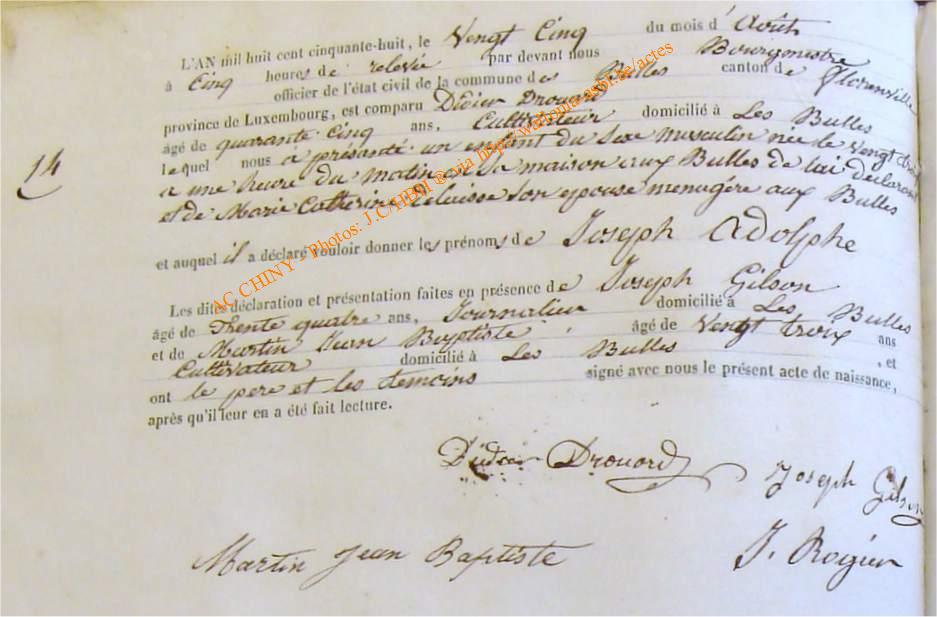 L'AN mil huit cent cinquante-huit, le Vengt Cinq du mois d'Août
à Cinq heures de relevée par devant nous Bourgmestre
officier de l'état civil de la commune des Bulles canton de Florenville
province de Luxembourg, est comparu Didier Drouard
âgé de quarante Cinq ans, Cultivateur domicilié à Les Bulles
lequel nous à présanté un enfant du Sexe masculin née le Vengt
14
a une heure du matin en Sa maison aux Bulles de lui déclarant
et de Marie Catherine Son epouse menugére aux Bulles
et auquel il a déclaré vouloir donner les prénoms de Joseph Adolphe
Les dites déclaration et présentation faites en présence de Joseph Gilson
âgé de Trente quatre ans, Journalier domicilié à Les Bulles
et de Martin Jean Baptiste, âgé de Vengt troix ans
Cultivateur domicilié à Les Bulles, et
ont le pere et les temoins signé avec nous le présent acte de naissance,
après qu'il leur en a été fait lecture.
Didier Drouard
Joseph Gilson
Martin Jean Baptiste
J. Rogier
AC CHINY - Photos: J.C. HBÏ ® via http://wallonia-asbl.be/actes